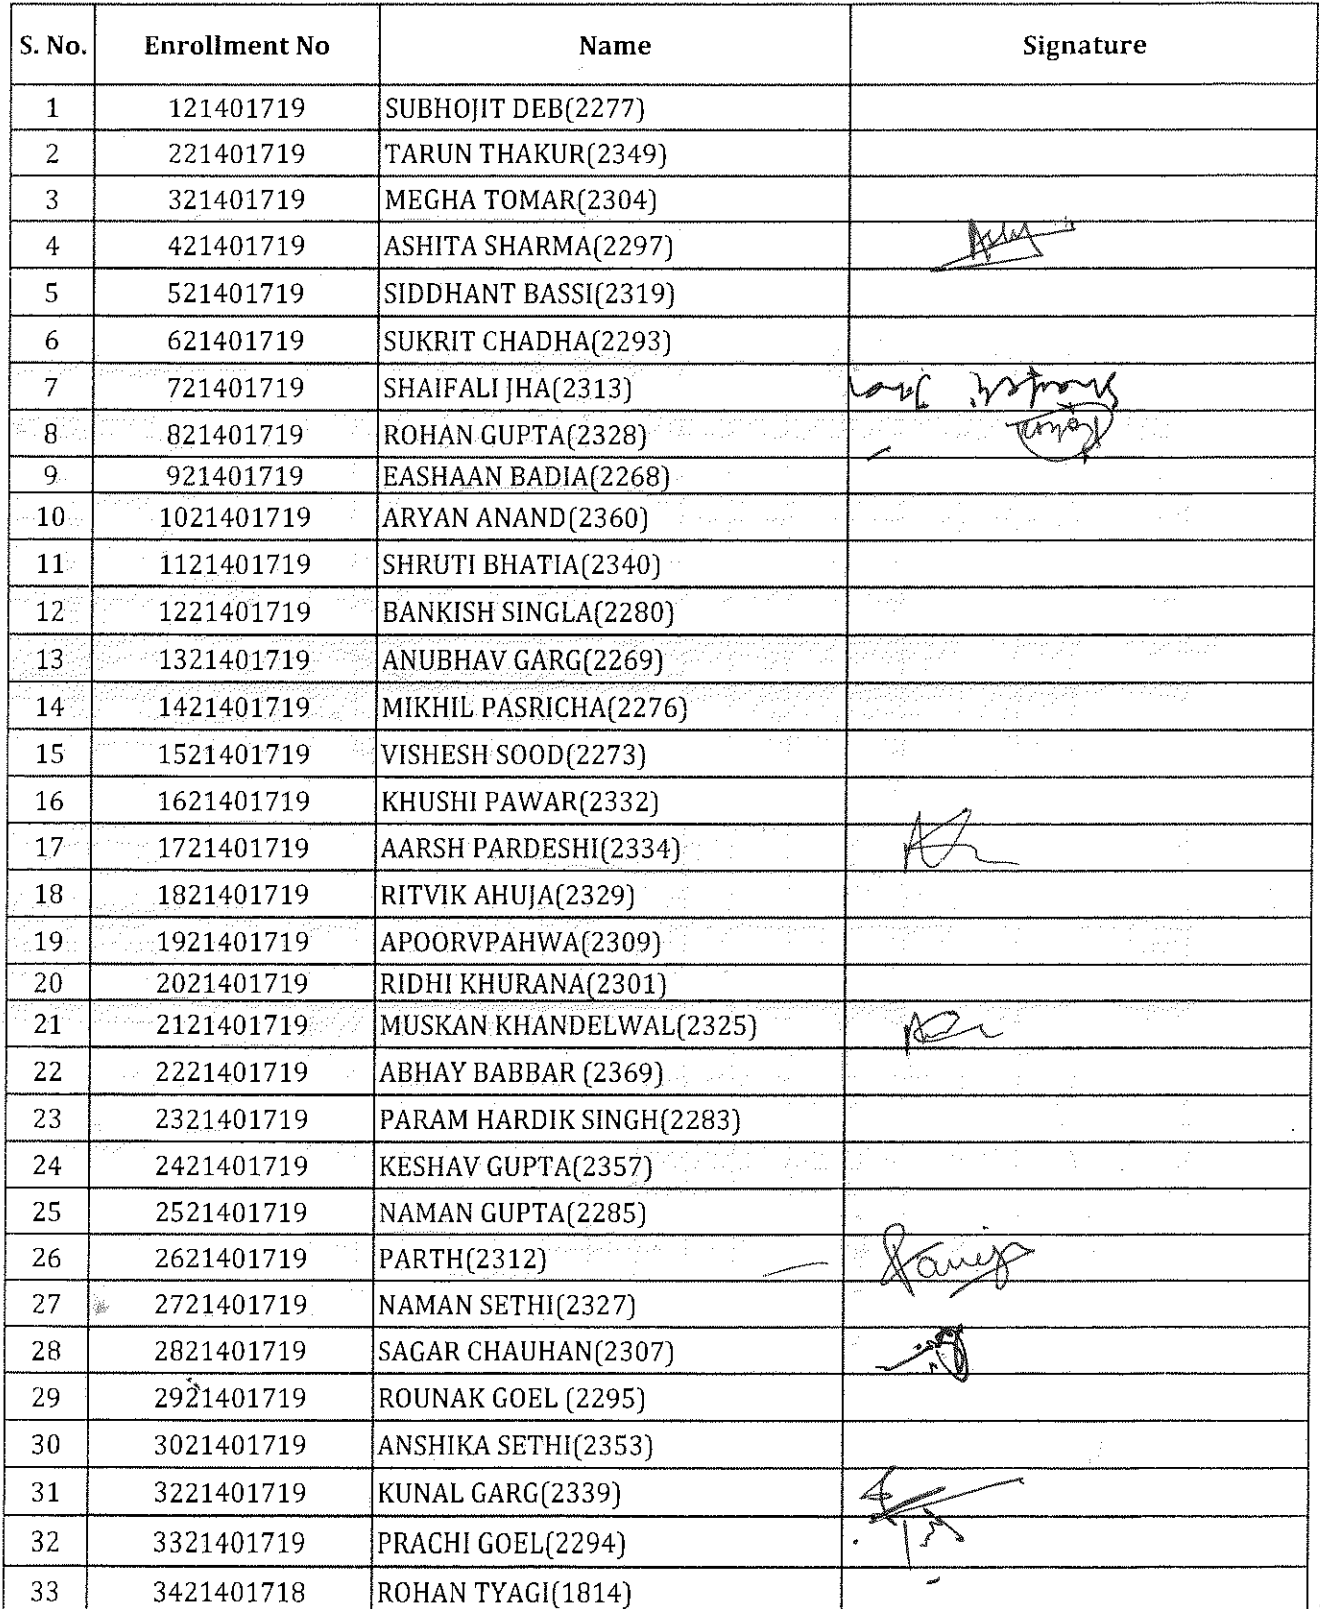 S. No. Enrollment No Name Signature
1 121401719 SUBHOJIT DEB(2277)
2 221401719 TARUN THAKUR(2349)
3 321401719 MEGHA TOMAR(2304)
4 421401719 ASHITA SHARMA(2297)
5 521401719 SIDDHANT BASSI(2319)
6 621401719 SUKRIT CHADHA(2293)
7 721401719 SHAIFALI JHA(2313)
8 821401719 ROHAN GUPTA(2328) Rohan
9 921401719 EASHAAN BADIA(2268)
10 1021401719 ARYAN ANAND(2360)
11 1121401719 SHRUTI BHATIA(2340)
12 1221401719 BANKISH SINGLA(2280)
13 1321401719 ANUBHAV GARG(2269)
14 1421401719 MIKHIL PASRICHA(2276)
15 1521401719 VISHESH SOOD(2273)
16 1621401719 KHUSHI PAWAR(2332)
17 1721401719 AARSH PARDESHI(2334)
18 1821401719 RITVIK AHUJA(2329)
19 1921401719 APOORVPAHWA(2309)
20 2021401719 RIDHI KHURANA(2301)
21 2121401719 MUSKAN KHANDELWAL(2325)
22 2221401719 ABHAY BABBAR (2369)
23 2321401719 PARAM HARDIK SINGH(2283)
24 2421401719 KESHAV GUPTA(2357)
25 2521401719 NAMAN GUPTA(2285)
26 2621401719 PARTH(2312)
27 2721401719 NAMAN SETHI(2327)
28 2821401719 SAGAR CHAUHAN(2307)
29 2921401719 ROUNAK GOEL (2295)
30 3021401719 ANSHIKA SETHI(2353)
31 3221401719 KUNAL GARG(2339)
32 3321401719 PRACHI GOEL(2294)
33 3421401718 ROHAN TYAGI(1814)